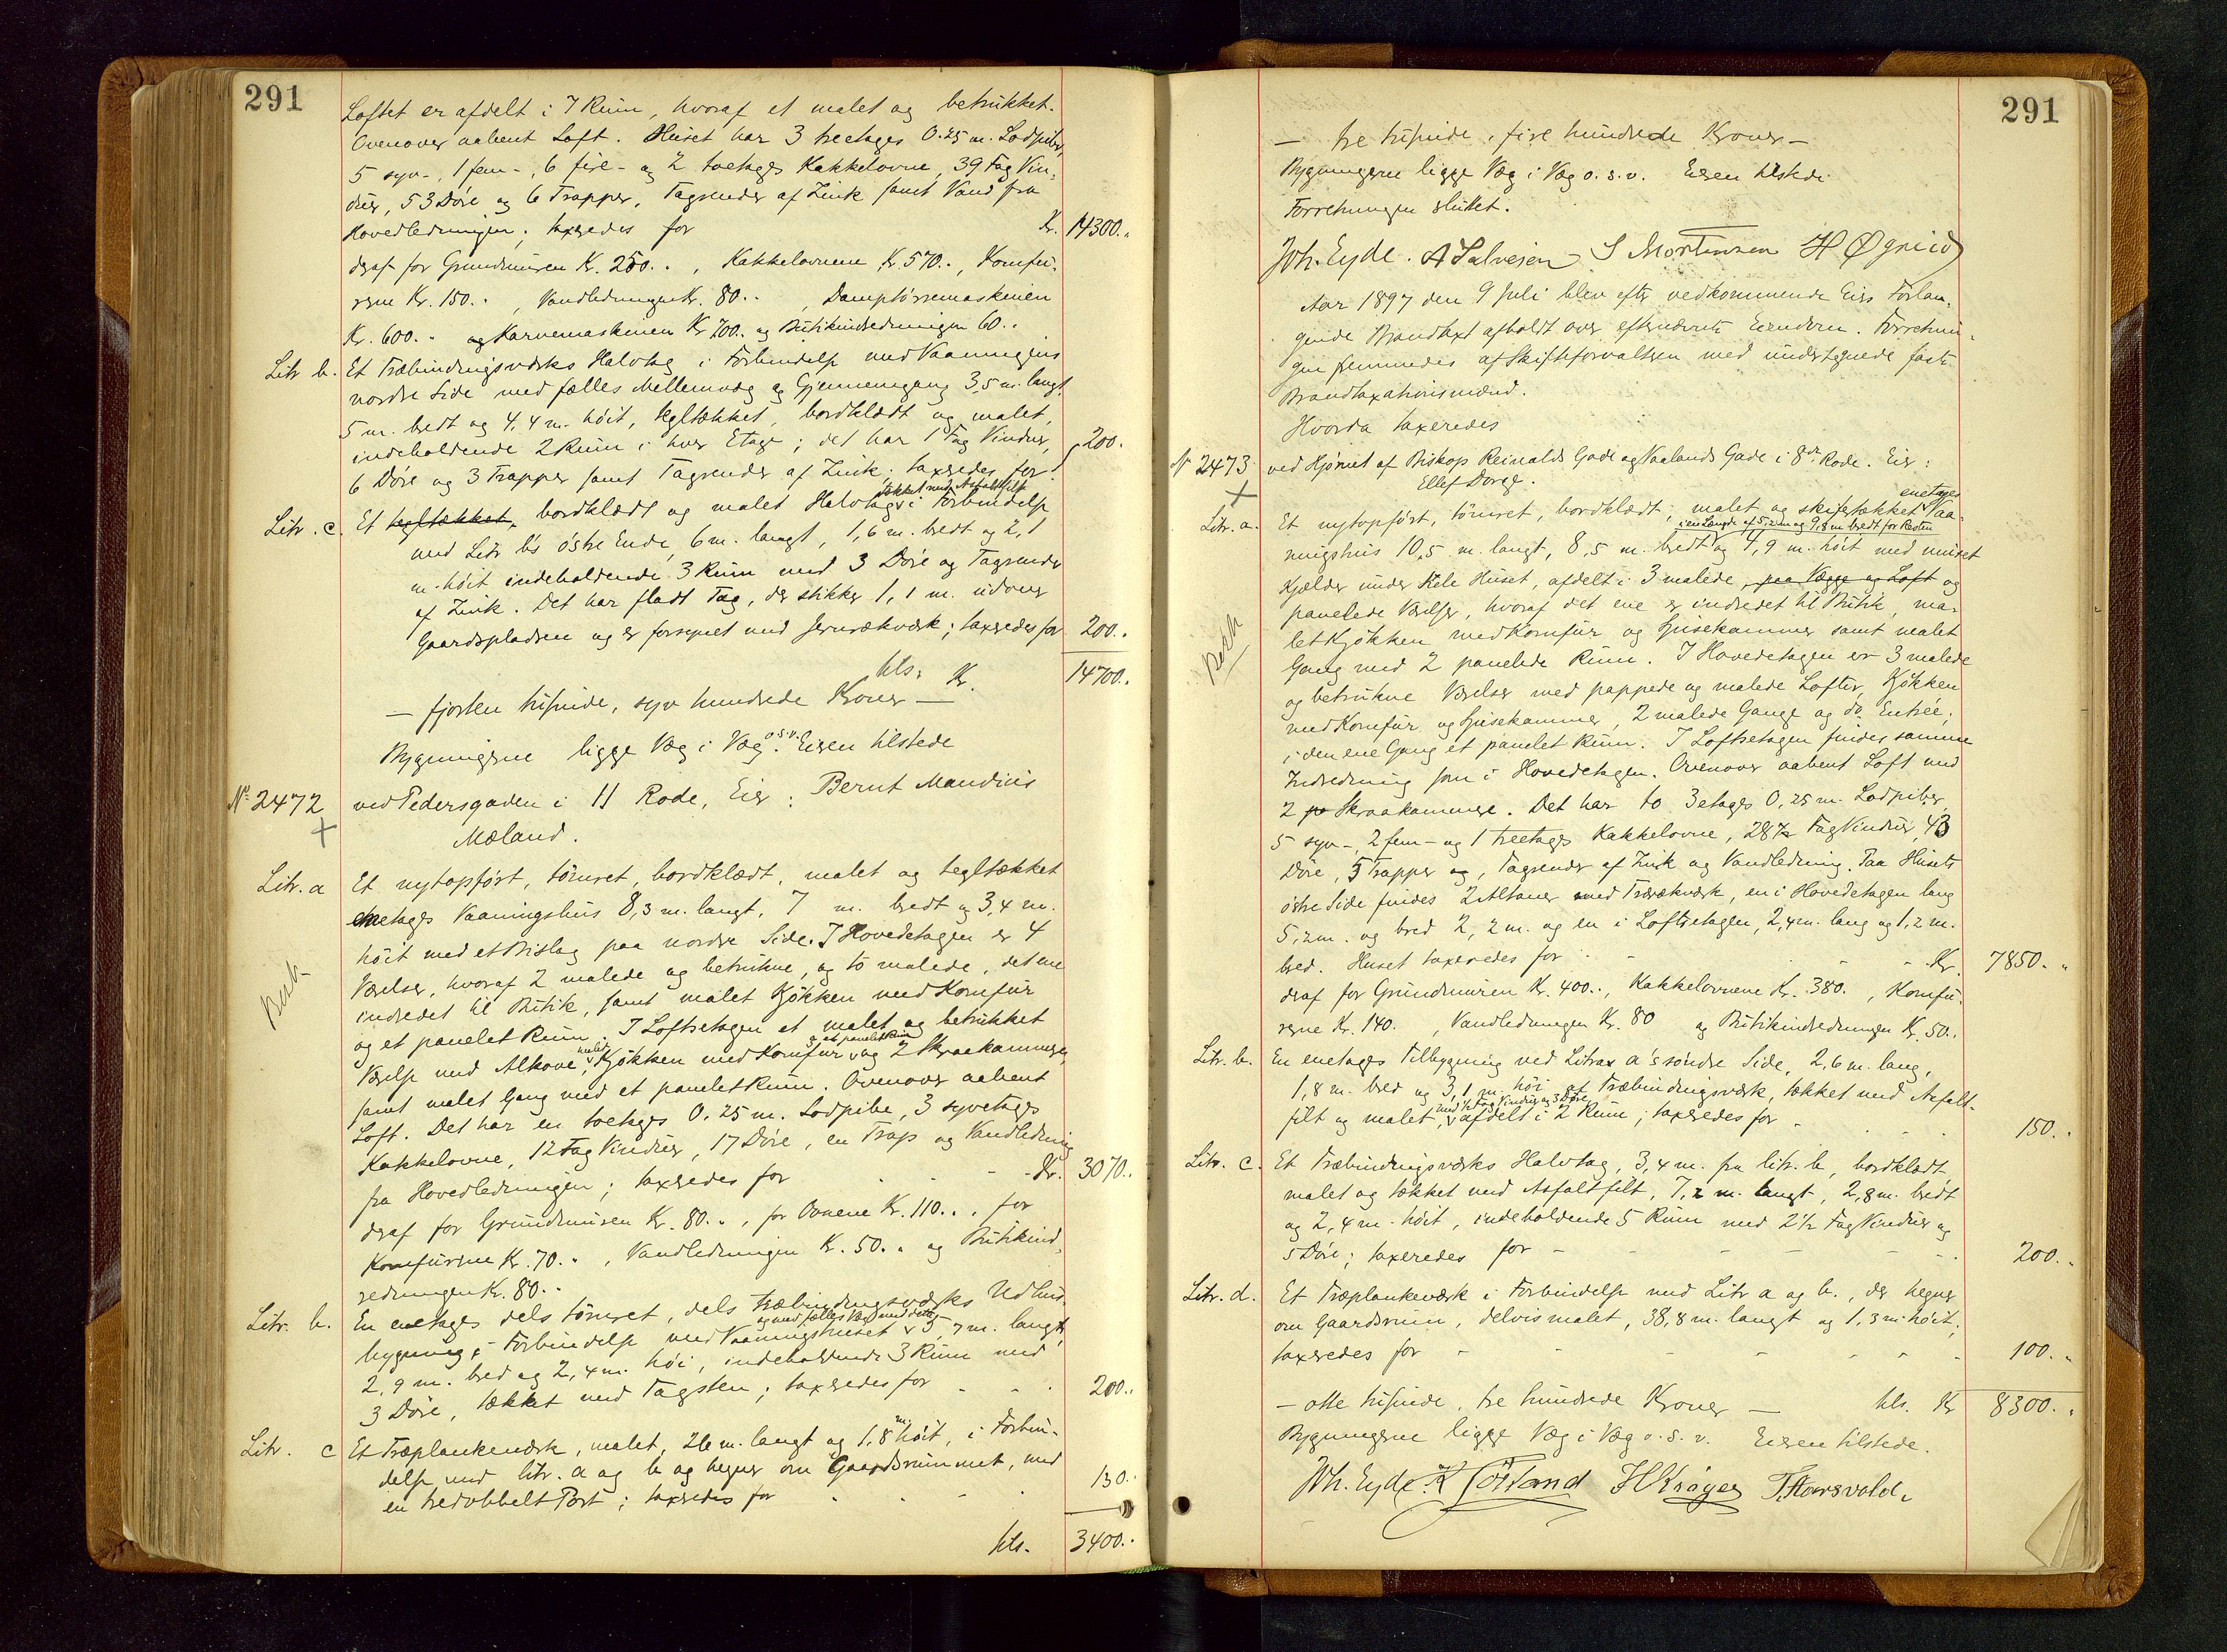 291
Loftet er afdelt i 7 Rum, hvoraf et malet og betrukket.
Ovenover aabent Loft. Huset har 3 treetages 0.25 m. Lodpiber,
5 syv-, 1 fem-, 6 fire- og 2 toetages Kakkelovne, 39 Fag Vin-
duer, 53 Döre og 6 Trapper, Tagrender af Zink samt Vand fra
Hovedledningen; taxeredes for Kr. 14300.„
deraf for Grundmuren Kr. 250.., Kakkelovnene Kr. 570.., Komfu-
rerne Kr. 150.., Vandledningen Kr. 80.., Damptörremaskinen
Kr. 600.. og Karnemaskinen Kr 700.. og Butikindredningen 60..
Litr b. Et Træbindingsværks Halvtag i Forbindelse med Vaaningens
nordre Side med fælles Mellemvæg og Gjennemgang 3,5 m. langt,
5 m. bredt og 4,4 m. höit, tegltækket, bordklædt og malet,
indeholdende 2 Rum i hver Etage; det har 1 Fag Vinduer,
6 Döre og 3 Trapper samt Tagrender af Zink; taxeredes for 200.
tækket med Asfaltfilt
Litr. c. Et tegltækket, bordklædt og malet Halvtag i Forbindelse
med Litr b's östre Ende, 6 m. langt, 1,6 m. bredt og 2,1
m. höit indeholdende 3 Rum med 3 Döre og Tagrender
af Zink. Det har fladt Tag, der stikker 1,1 m. udover
Gaardspladsen og er forsynet med Jernrækværk; taxeredes for 200..
tils. Kr. 14700..
— fjorten tusinde, syv hundrede Kroner —
Bygningerne ligge Væg i Væg o.s.v. Eieren tilstede
No 2472 ved Pedersgaden i 11 Rode, Eier: Bernt Mandius
Mæland.
Litr. a Et nytopfört, tömret, bordklædt, malet og tegltækket
enetages Vaaningshus 8,3 m. langt, 7 m. bredt og 3,4 m.
höit med et Bislag paa nordre Side. I Hovedetagen er 4
Værelser, hvoraf 2 malede og betrukne, og to malede, det ene
indredet til Butik, samt malet Kjökken med Komfur
og et panelet Rum. I Loftsetagen et malet og betrukket
malet og et panelet Rum
Værelse med Alkove, Kjökken med Komfur og 2 Skraakammere,
samt malet Gang med et panelet Rum. Ovenover aabent
Loft. Det har en toetages 0.25 m. Lodpibe, 3 syvetages
Kakkelovne, 12 Fag Vinduer, 17 Döre, en Trap og Vandledning
fra Hovedledningen; taxeredes for - - Kr. 3070..
deraf for Grundmuren Kr. 80.., for Ovnene Kr. 110.., for
Komfurene Kr. 70.., Vandledningen Kr. 50.. og Butikind-
redningen Kr. 80..
Litr. b. En enetages dels tömret, dels træbindingsværks Udhus-
og med fælles Væg med dette
bygning i Forbindelse med Vaaningshuset 5,7 m. langt,
2,9 m. bred og 2,4 m. höi, indeholdende 3 Rum med
3 Döre, tækket med Tagsten; taxeredes for - - 200..
Litr. c Et Træplankeværk, malet, 26 m. langt og 1,8 m. höit, i Forbin-
delse med litr. a og b og hegner om Gaardsrummet, med
en tredobbelt Port; taxeredes for 130..
tils. 3400..
291
— tre tusinde, fire hundrede Kroner —
Bygningerne ligge Væg i Væg o.s.v. Eieren tilstede
Forretningen sluttet.
Joh. Eyde. A Salvesen S Mortensen H Øgreid
Aar 1897 den 9 Juli blev efter vedkommende Eiers Forlan-
gende Brandtaxt afholdt over efternævnte Eiendom. Forretnin-
gen fremmedes af Skifteforvalteren med undertegnede faste
Brandtaxationsmænd.
Hvorda taxeredes
No 2473 ved Hjörnet af Biskop Reinalds Gade og Vaalands Gade i 8de Rode. Eier:
Ellef Doreg.
enetages
Litr. a. Et nytopfört, tömret, bordklædt, malet og skifertækket Vaa-
i en Længde af 5,2 m og 9,8 m bredt for Resten
ningshus 10,5 m. langt, 8,5 m. bredt og 4,9 m. höit med muret
Kjælder under hele Huset, afdelt i 3 malede, paa Vægge og Loft og
panelede Værelser, hvoraf det ene er indredet til Butik, ma-
let Kjökken med Komfur og Spisekammer samt malet
Gang med 2 panelede Rum. I Hovedetagen er 3 malede
og betrukne Værelser med pappede og malede Lofter, Kjökken
med Komfur og Spisekammer, 2 malede Gange og do. Entrée;
i den ene Gang et panelet Rum. I Loftsetagen findes samme
Indredning som i Hovedetagen. Ovenover aabent Loft med
2 pa Skraakammere. Det har to 3etages 0,25 m. Lodpiber,
5 syv-, 2 fem- og 1 treetages Kakkelovne, 28½ Fag Vinduer, 43
Döre, 5 Trapper og, Tagrender af Zink og Vandledning. Paa Husets
östre Side findes 2 Altaner med Trærækværk, en i Hovedetagen lang
5,2 m. og bred 2,2 m. og en i Loftsetagen, 2,4 m. lang og 1,2 m.
bred. Huset taxeredes for - - Kr. 7850.„
deraf for Grundmuren Kr. 400.., Kakkelovnene Kr. 380., Komfu-
rerne Kr. 140., Vandledningen Kr. 80 og Butikindredningen Kr. 50..
Litr. b. En enetages Tilbygning ved Litra a's söndre Side, 2,6 m. lang,
1,8 m. bred og 3,1 m. höi af Træbindingsværk, tækket med Asfalt-
med ½ Fag Vinduer og 3 Döre,
filt og malet, afdelt i 2 Rum; taxeredes for - - 150..
Litr. c. Et Træbindingsværks Halvtag, 3,4 m. fra litr. b, bordklædt,
malet og tækket med Asfaltfilt, 7,2 m. langt, 2,8 m. bredt
og 2,4 m. höit, indeholdende 5 Rum med 2½ Fag Vinduer og
5 Döre; taxeredes for - - 200..
Litr. d. Et Træplankeværk i Forbindelse med Litr a og b., der hegner
om Gaardsrum, delvis malet, 38,8 m. langt og 1,3 m. höit;
taxeredes for - - 100..
— otte tusinde, tre hundrede Kroner — tils. Kr 8300..
Bygningerne ligge Væg i Væg o.s.v. Eieren tilstede.
Joh. Eyde. H Kröger T. Haarsvold.